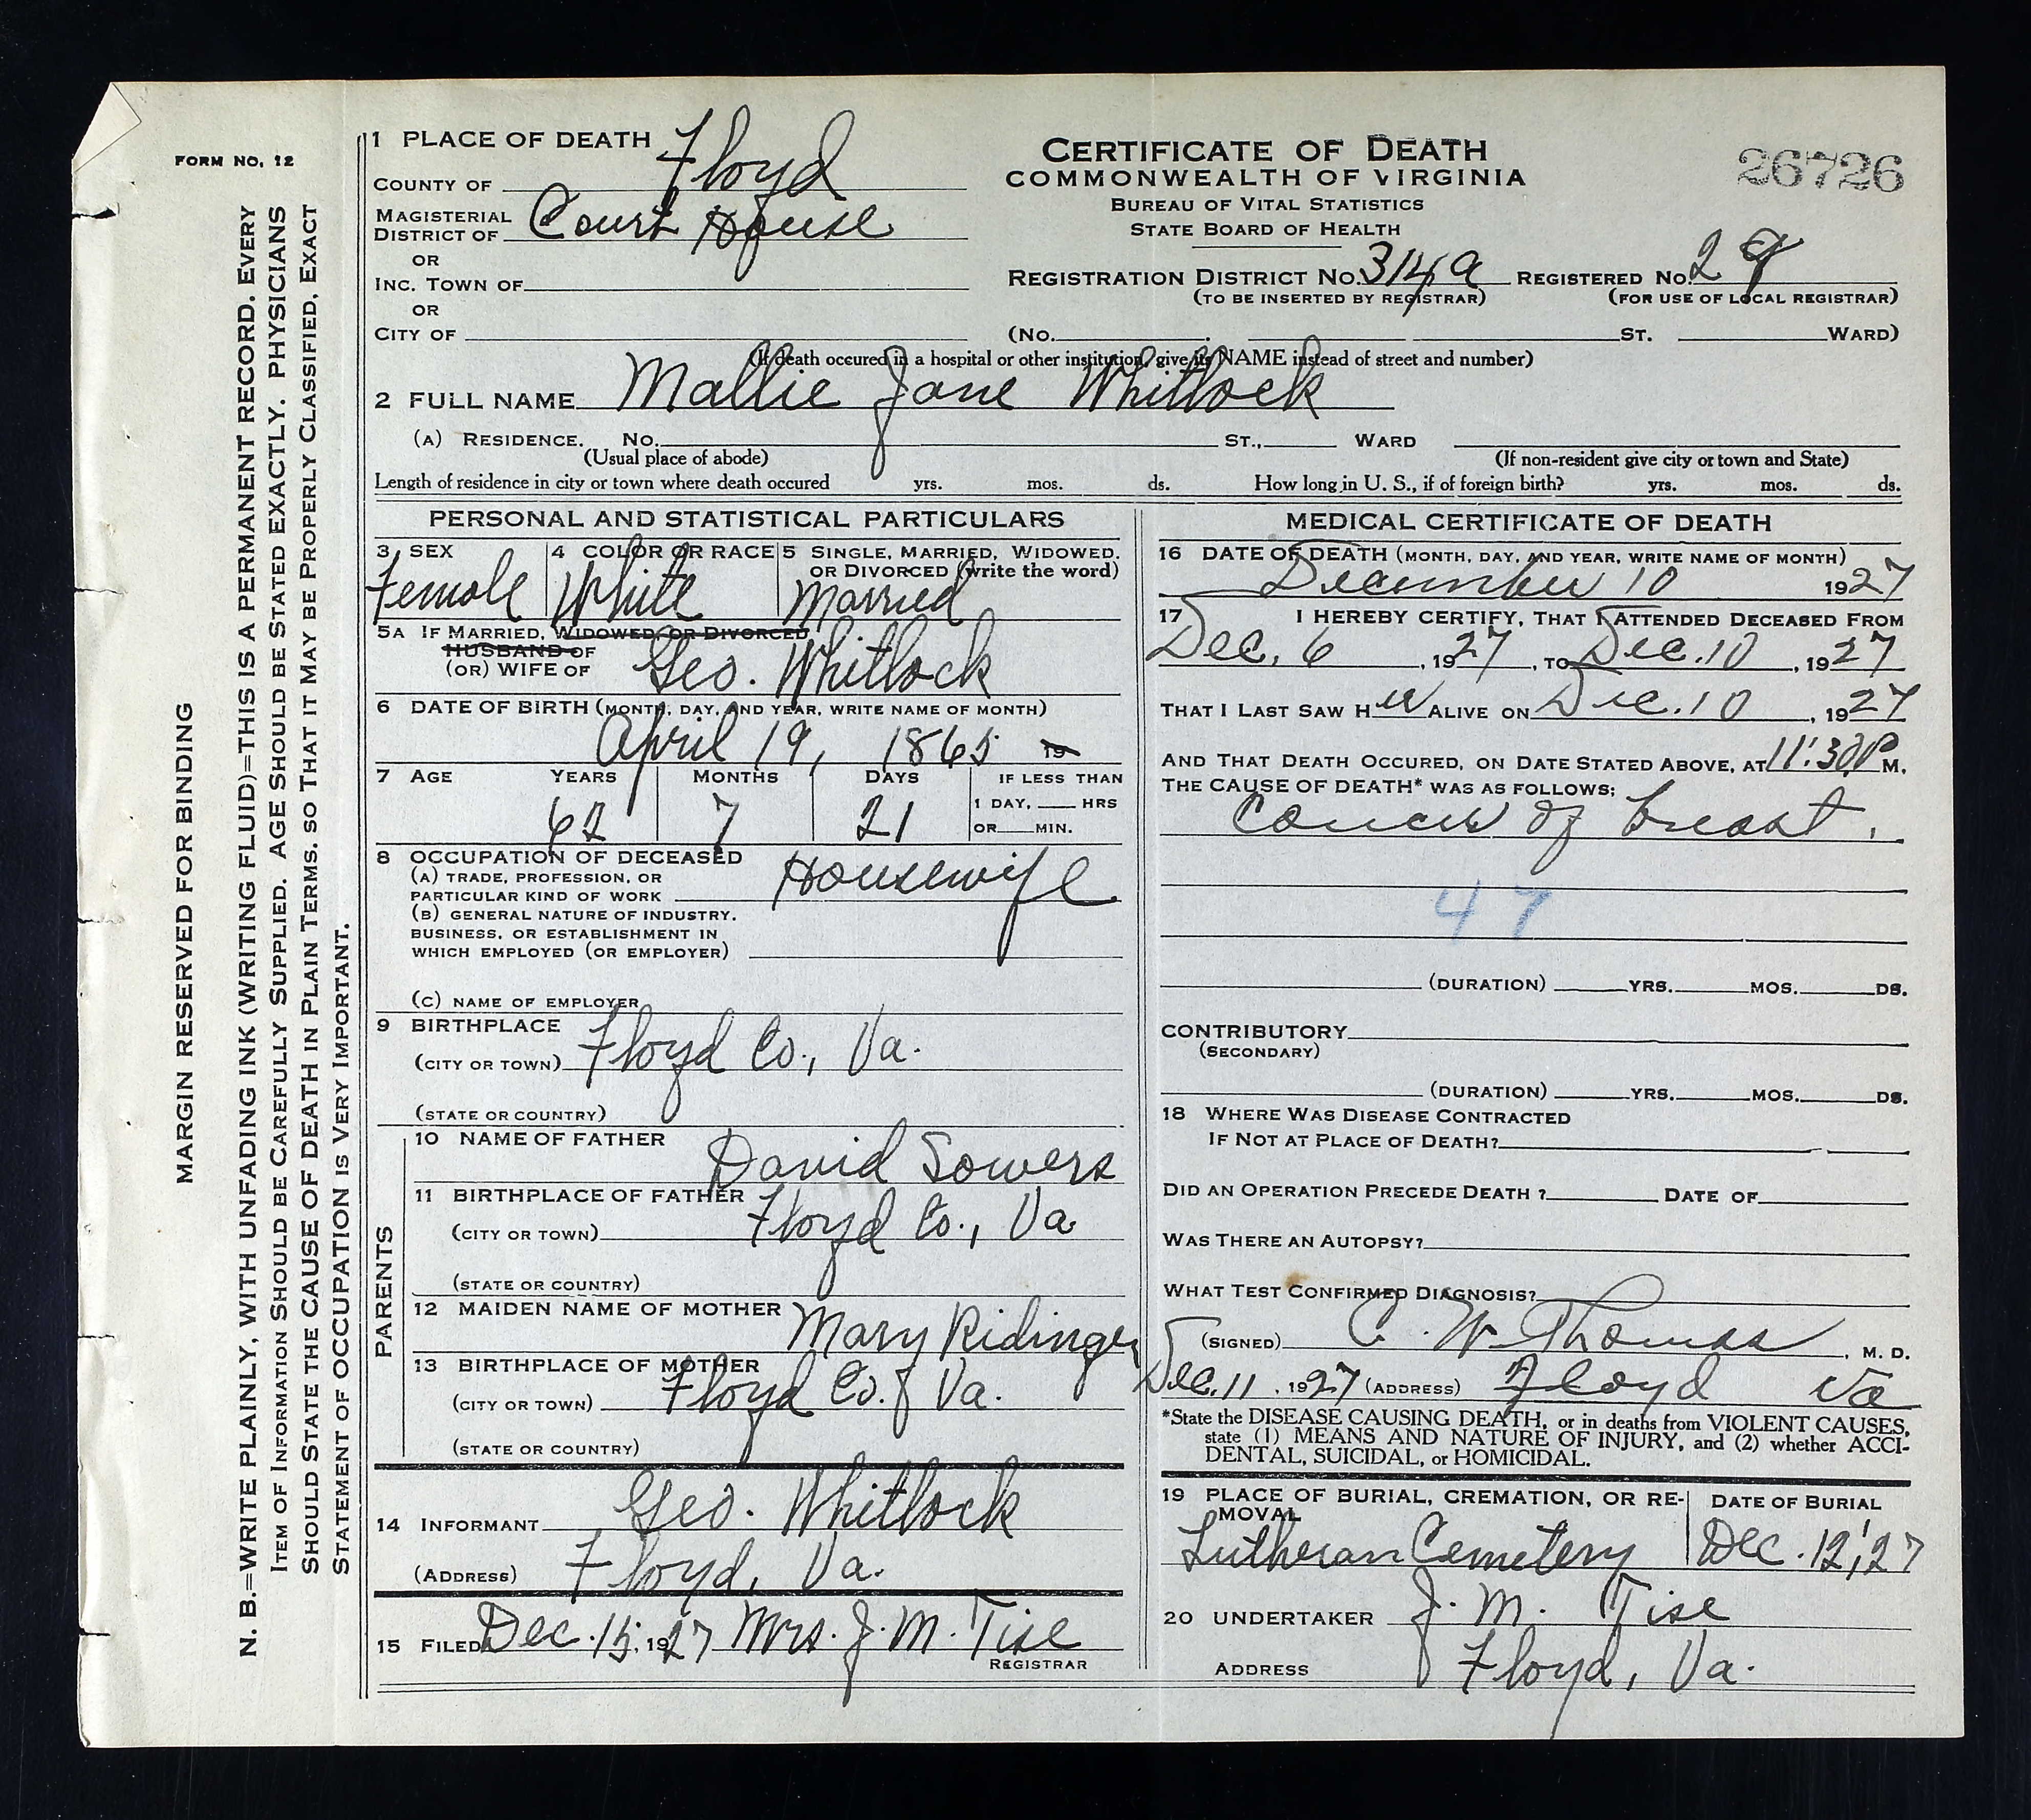 FORM NO. 12
MARGIN RESERVED FOR BINDING
N. B.=WRITE PLAINLY, WITH UNFADING INK (WRITING FLUID)=THIS IS A PERMANENT RECORD. EVERY
ITEM OF INFORMATION SHOULD BE CAREFULLY SUPPLIED. AGE SHOULD BE STATED EXACTLY. PHYSICIANS
SHOULD STATE THE CAUSE OF DEATH IN PLAIN TERMS. SO THAT IT MAY BE PROPERLY CLASSIFIED, EXACT
STATEMENT OF OCCUPATION IS VERY IMPORTANT.
CERTIFICATE OF DEATH
COMMONWEALTH OF VIRGINIA
BUREAU OF VITAL STATISTICS
STATE BOARD OF HEALTH
26726
1 PLACE OF DEATH
COUNTY OF Floyd
MAGISTERIAL DISTRICT OF Court House
OR
INC. TOWN OF
OR
REGISTRATION DISTRICT NO. 314a REGISTERED NO. 29
(TO BE INSERTED BY REGISTRAR) (FOR USE OF LOCAL REGISTRAR)
CITY OF (NO. ST. WARD)
(If death occured in a hospital or other institution, give its NAME instead of street and number)
2 FULL NAME Mallie Jane Whitlock
(A) RESIDENCE. NO. ST., WARD
(Usual place of abode) (If non-resident give city or town and State)
Length of residence in city or town where death occured yrs. mos. ds. How long in U. S., if of foreign birth? yrs. mos. ds.
PERSONAL AND STATISTICAL PARTICULARS
3 SEX 4 COLOR OR RACE 5 SINGLE, MARRIED, WIDOWED, OR DIVORCED (write the word)
Female White Married
5A IF MARRIED, WIDOWED, OR DIVORCED
HUSBAND OF
(OR) WIFE OF Geo. Whitlock
6 DATE OF BIRTH (MONTH, DAY, AND YEAR, WRITE NAME OF MONTH)
April 19, 1865 19
7 AGE YEARS MONTHS DAYS IF LESS THAN
1 DAY, HRS
62 7 21 OR MIN.
8 OCCUPATION OF DECEASED
(A) TRADE, PROFESSION, OR
PARTICULAR KIND OF WORK Housewife
(B) GENERAL NATURE OF INDUSTRY.
BUSINESS, OR ESTABLISHMENT IN
WHICH EMPLOYED (OR EMPLOYER)
(C) NAME OF EMPLOYER
9 BIRTHPLACE
(CITY OR TOWN) Floyd Co., Va.
(STATE OR COUNTRY)
PARENTS
10 NAME OF FATHER David Sowers
11 BIRTHPLACE OF FATHER
(CITY OR TOWN) Floyd Co., Va
(STATE OR COUNTRY)
12 MAIDEN NAME OF MOTHER Mary Ridinger
13 BIRTHPLACE OF MOTHER
(CITY OR TOWN) Floyd Co., Va.
(STATE OR COUNTRY)
14 INFORMANT Geo. Whitlock
(ADDRESS) Floyd, Va.
15 FILED Dec. 15, 1927 Mrs. J. M. Tise
REGISTRAR
MEDICAL CERTIFICATE OF DEATH
16 DATE OF DEATH (MONTH, DAY, AND YEAR, WRITE NAME OF MONTH)
December 10 1927
17 I HEREBY CERTIFY, THAT I ATTENDED DECEASED FROM
Dec. 6, 1927, TO Dec. 10, 1927
THAT I LAST SAW HER ALIVE ON Dec. 10, 1927
AND THAT DEATH OCCURED, ON DATE STATED ABOVE, AT 11:30 P M.
THE CAUSE OF DEATH* WAS AS FOLLOWS:
Cancer of breast.
47
(DURATION) YRS. MOS. DS.
CONTRIBUTORY
(SECONDARY)
(DURATION) YRS. MOS. DS.
18 WHERE WAS DISEASE CONTRACTED
IF NOT AT PLACE OF DEATH?
DID AN OPERATION PRECEDE DEATH? DATE OF
WAS THERE AN AUTOPSY?
WHAT TEST CONFIRMED DIAGNOSIS?
(SIGNED) C. W. Thomas, M. D.
Dec. 11, 1927 (ADDRESS) Floyd Va
*State the DISEASE CAUSING DEATH, or in deaths from VIOLENT CAUSES,
state (1) MEANS AND NATURE OF INJURY, and (2) whether ACCI-
DENTAL, SUICIDAL, or HOMICIDAL.
19 PLACE OF BURIAL, CREMATION, OR RE-
MOVAL DATE OF BURIAL
Lutheran Cemetery Dec. 12,'27
20 UNDERTAKER J. M. Tise
ADDRESS Floyd, Va.